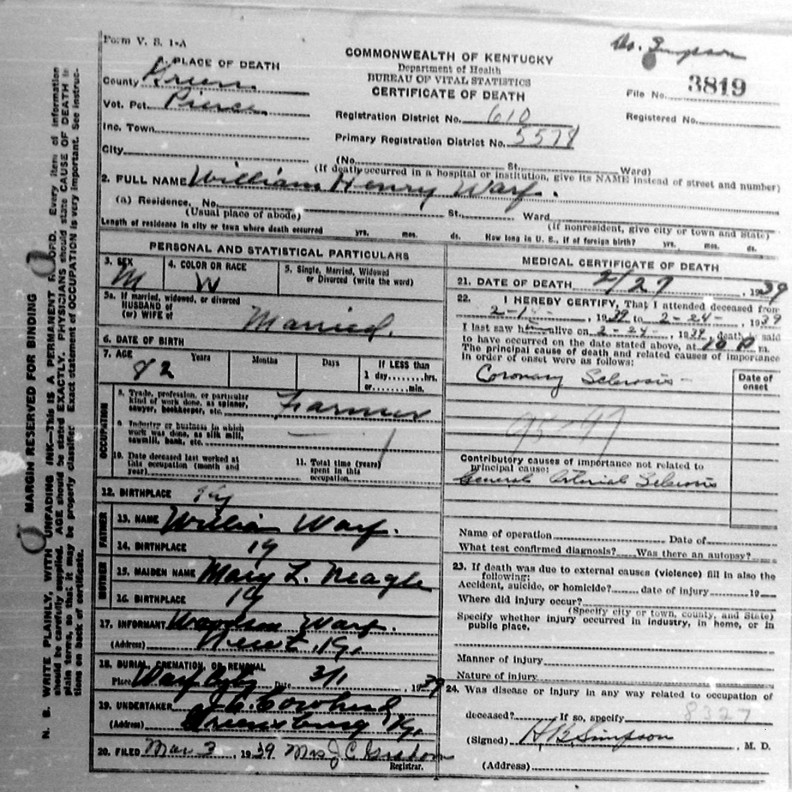 Form V. S. 1-A
COMMONWEALTH OF KENTUCKY
Department of Health
BUREAU OF VITAL STATISTICS
CERTIFICATE OF DEATH
File No. 3819
Registered No.
Registration District No. 610
Primary Registration District No. 5578
PLACE OF DEATH
County
Vot. Pct. Pierce
Inc. Town
City
(No. St. Ward)
(If death occurred in a hospital or institution, give its NAME instead of street and number)
2. FULL NAME William Henry Warf.
(a) Residence, No. St. Ward
(Usual place of abode) (If nonresident, give city or town and State)
Length of residence in city or town where death occurred yrs. mos. ds. How long in U. S., if of foreign birth? yrs. mos. ds.
PERSONAL AND STATISTICAL PARTICULARS
3. SEX M
4. COLOR OR RACE W
5. Single, Married, Widowed or Divorced (write the word)
5a. If married, widowed, or divorced
HUSBAND of
(or) WIFE of Married.
6. DATE OF BIRTH
7. AGE 82 Years Months Days If LESS than
1 day......hrs.
or......min.
OCCUPATION
8. Trade, profession, or particular
kind of work done, as spinner,
sawyer, bookkeeper, etc. Farmer
9. Industry or business in which
work was done, as silk mill,
sawmill, bank, etc.
10. Date deceased last worked at
this occupation (month and
year)
11. Total time (years)
spent in this
occupation
12. BIRTHPLACE Ky
FATHER
13. NAME William Warf.
14. BIRTHPLACE Ky
MOTHER
15. MAIDEN NAME Mary L. Neagle
16. BIRTHPLACE Ky
17. INFORMANT Warf.
(Address) Ky.
18. BURIAL, CREMATION, OR REMOVAL
Place Date 3/1, 1939
19. UNDERTAKER
(Address) Greensburg Ky.
20. FILED Mar 3, 1939 Mrs J C
Registrar.
MEDICAL CERTIFICATE OF DEATH
21. DATE OF DEATH 2/27, 1939
22. I HEREBY CERTIFY, That I attended deceased from
, 1939, to 2-24-, 1939
I last saw h alive on 2-24-, 1939, death is said
to have occurred on the date stated above, at 10 P m.
The principal cause of death and related causes of importance
in order of onset were as follows:
Date of
onset
Coronary Sclerosis
95-97
Contributory causes of importance not related to
principal cause:
General Arterial Sclerosis
Name of operation Date of
What test confirmed diagnosis? Was there an autopsy?
23. If death was due to external causes (violence) fill in also the
following:
Accident, suicide, or homicide? date of injury 19
Where did injury occur?
(Specify city or town, county, and State)
Specify whether injury occurred in industry, in home, or in
public place.
Manner of injury
Nature of injury
24. Was disease or injury in any way related to occupation of
deceased? If so, specify 8327
(Signed) H B Simpson, M. D.
(Address)
MARGIN RESERVED FOR BINDING
N. B. WRITE PLAINLY, WITH UNFADING INK—This is A PERMANENT Every item of information
should be carefully supplied. AGE should be stated EXACTLY. PHYSICIANS should state CAUSE OF DEATH in
plain terms, so that it may be properly classified. Exact statement of OCCUPATION is very important. See instruc-
tions on back of certificate.